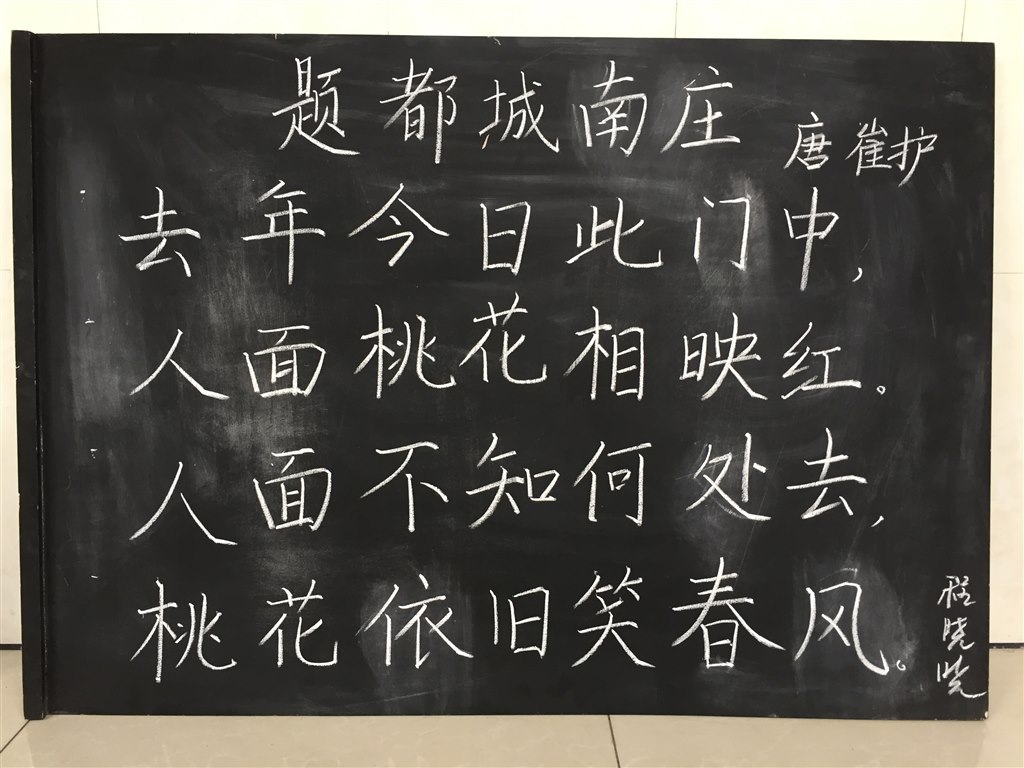 题都城南庄
唐 崔护
去年今日此门中,
人面桃花相映红。
人面不知何处去,
桃花依旧笑春风。
程晓晓